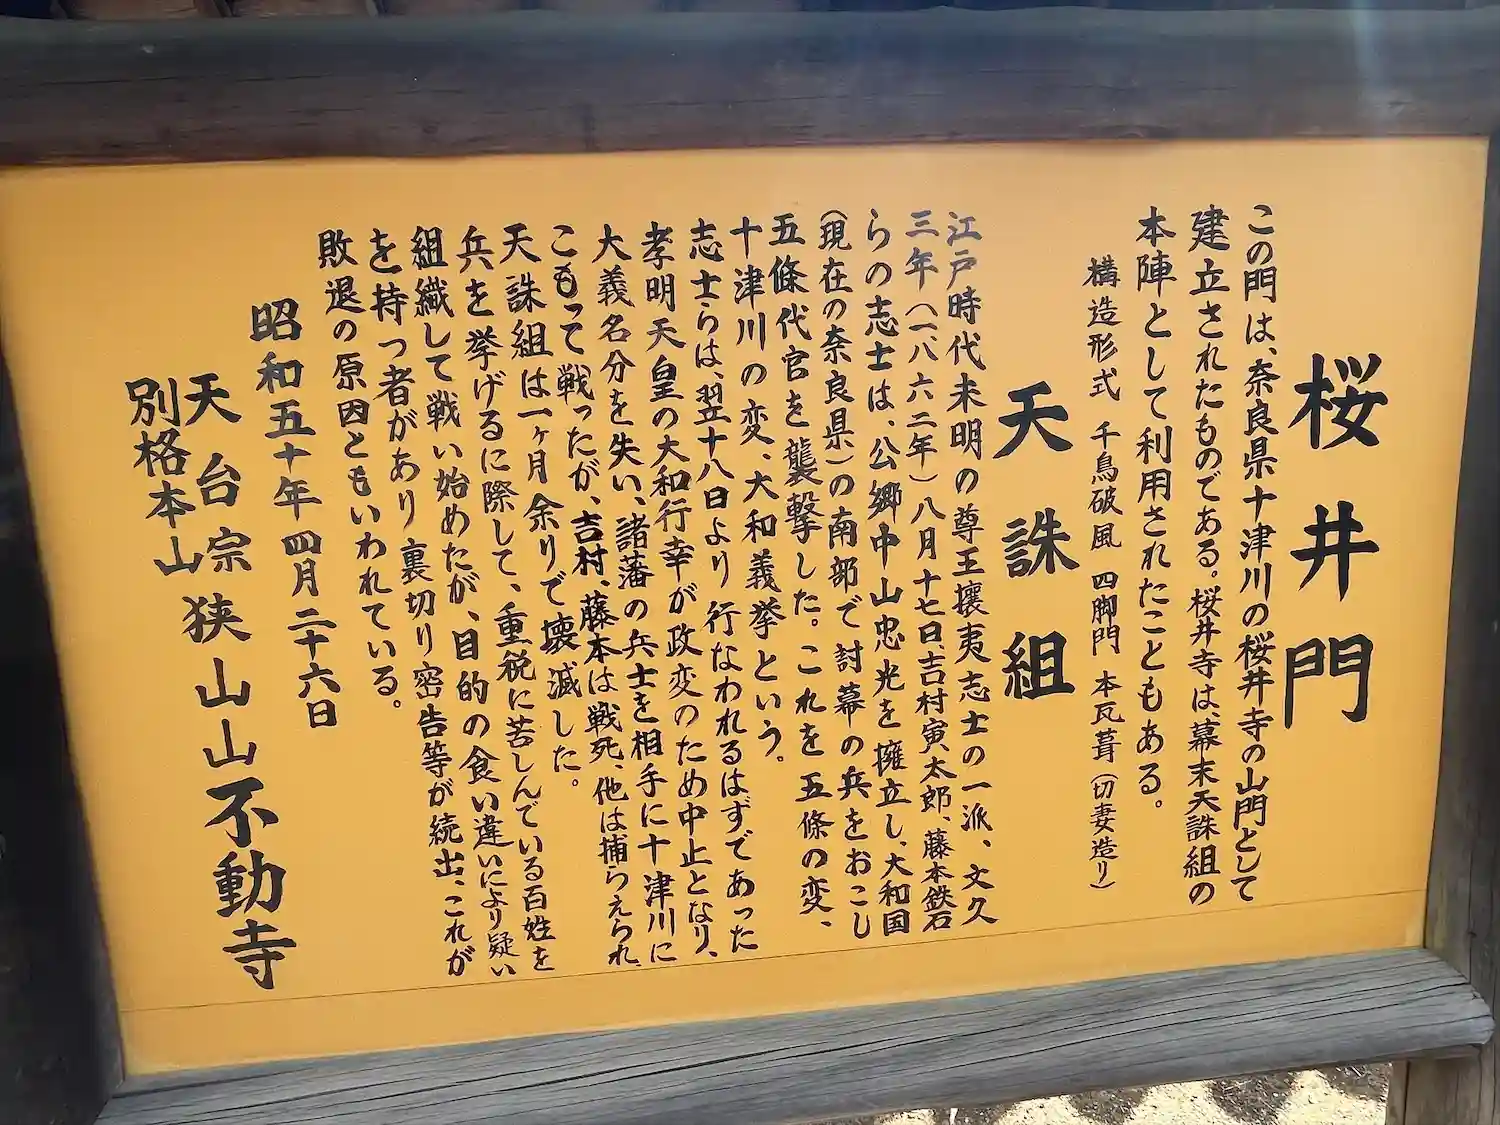 桜井門
この門は、奈良県十津川の桜井寺の山門として
建立されたものである。桜井寺は、幕末天誅組の
本陣として利用されたこともある。
構造形式 千鳥破風 四脚門 本瓦葺(切妻造り)
天誅組
江戸時代末明の尊王攘夷志士の一派、文久
三年(一八六二年)八月十七日、吉村寅太郎、藤本鉄石
らの志士は、公郷中山忠光を擁立し、大和国
(現在の奈良県)の南部で討幕の兵をおこし
五條代官を襲撃した。これを五條の変、
十津川の変、大和義挙という。
志士らは、翌十八日より行なわれるはずであった
孝明天皇の大和行幸が政変のため中止となり、
大義名分を失い、諸藩の兵士を相手に十津川に
こもって戦ったが、吉村、藤本は戦死、他は捕らえられ、
天誅組は一ヶ月余りで壊滅した。
兵を挙げるに際して、重税に苦しんでいる百姓を
組織して戦い始めたが、目的の食い違いにより疑い
を持つ者があり裏切り密告等が続出、これが
敗退の原因ともいわれている。
昭和五十年四月二十六日
天台宗 狭山山不動寺
別格本山